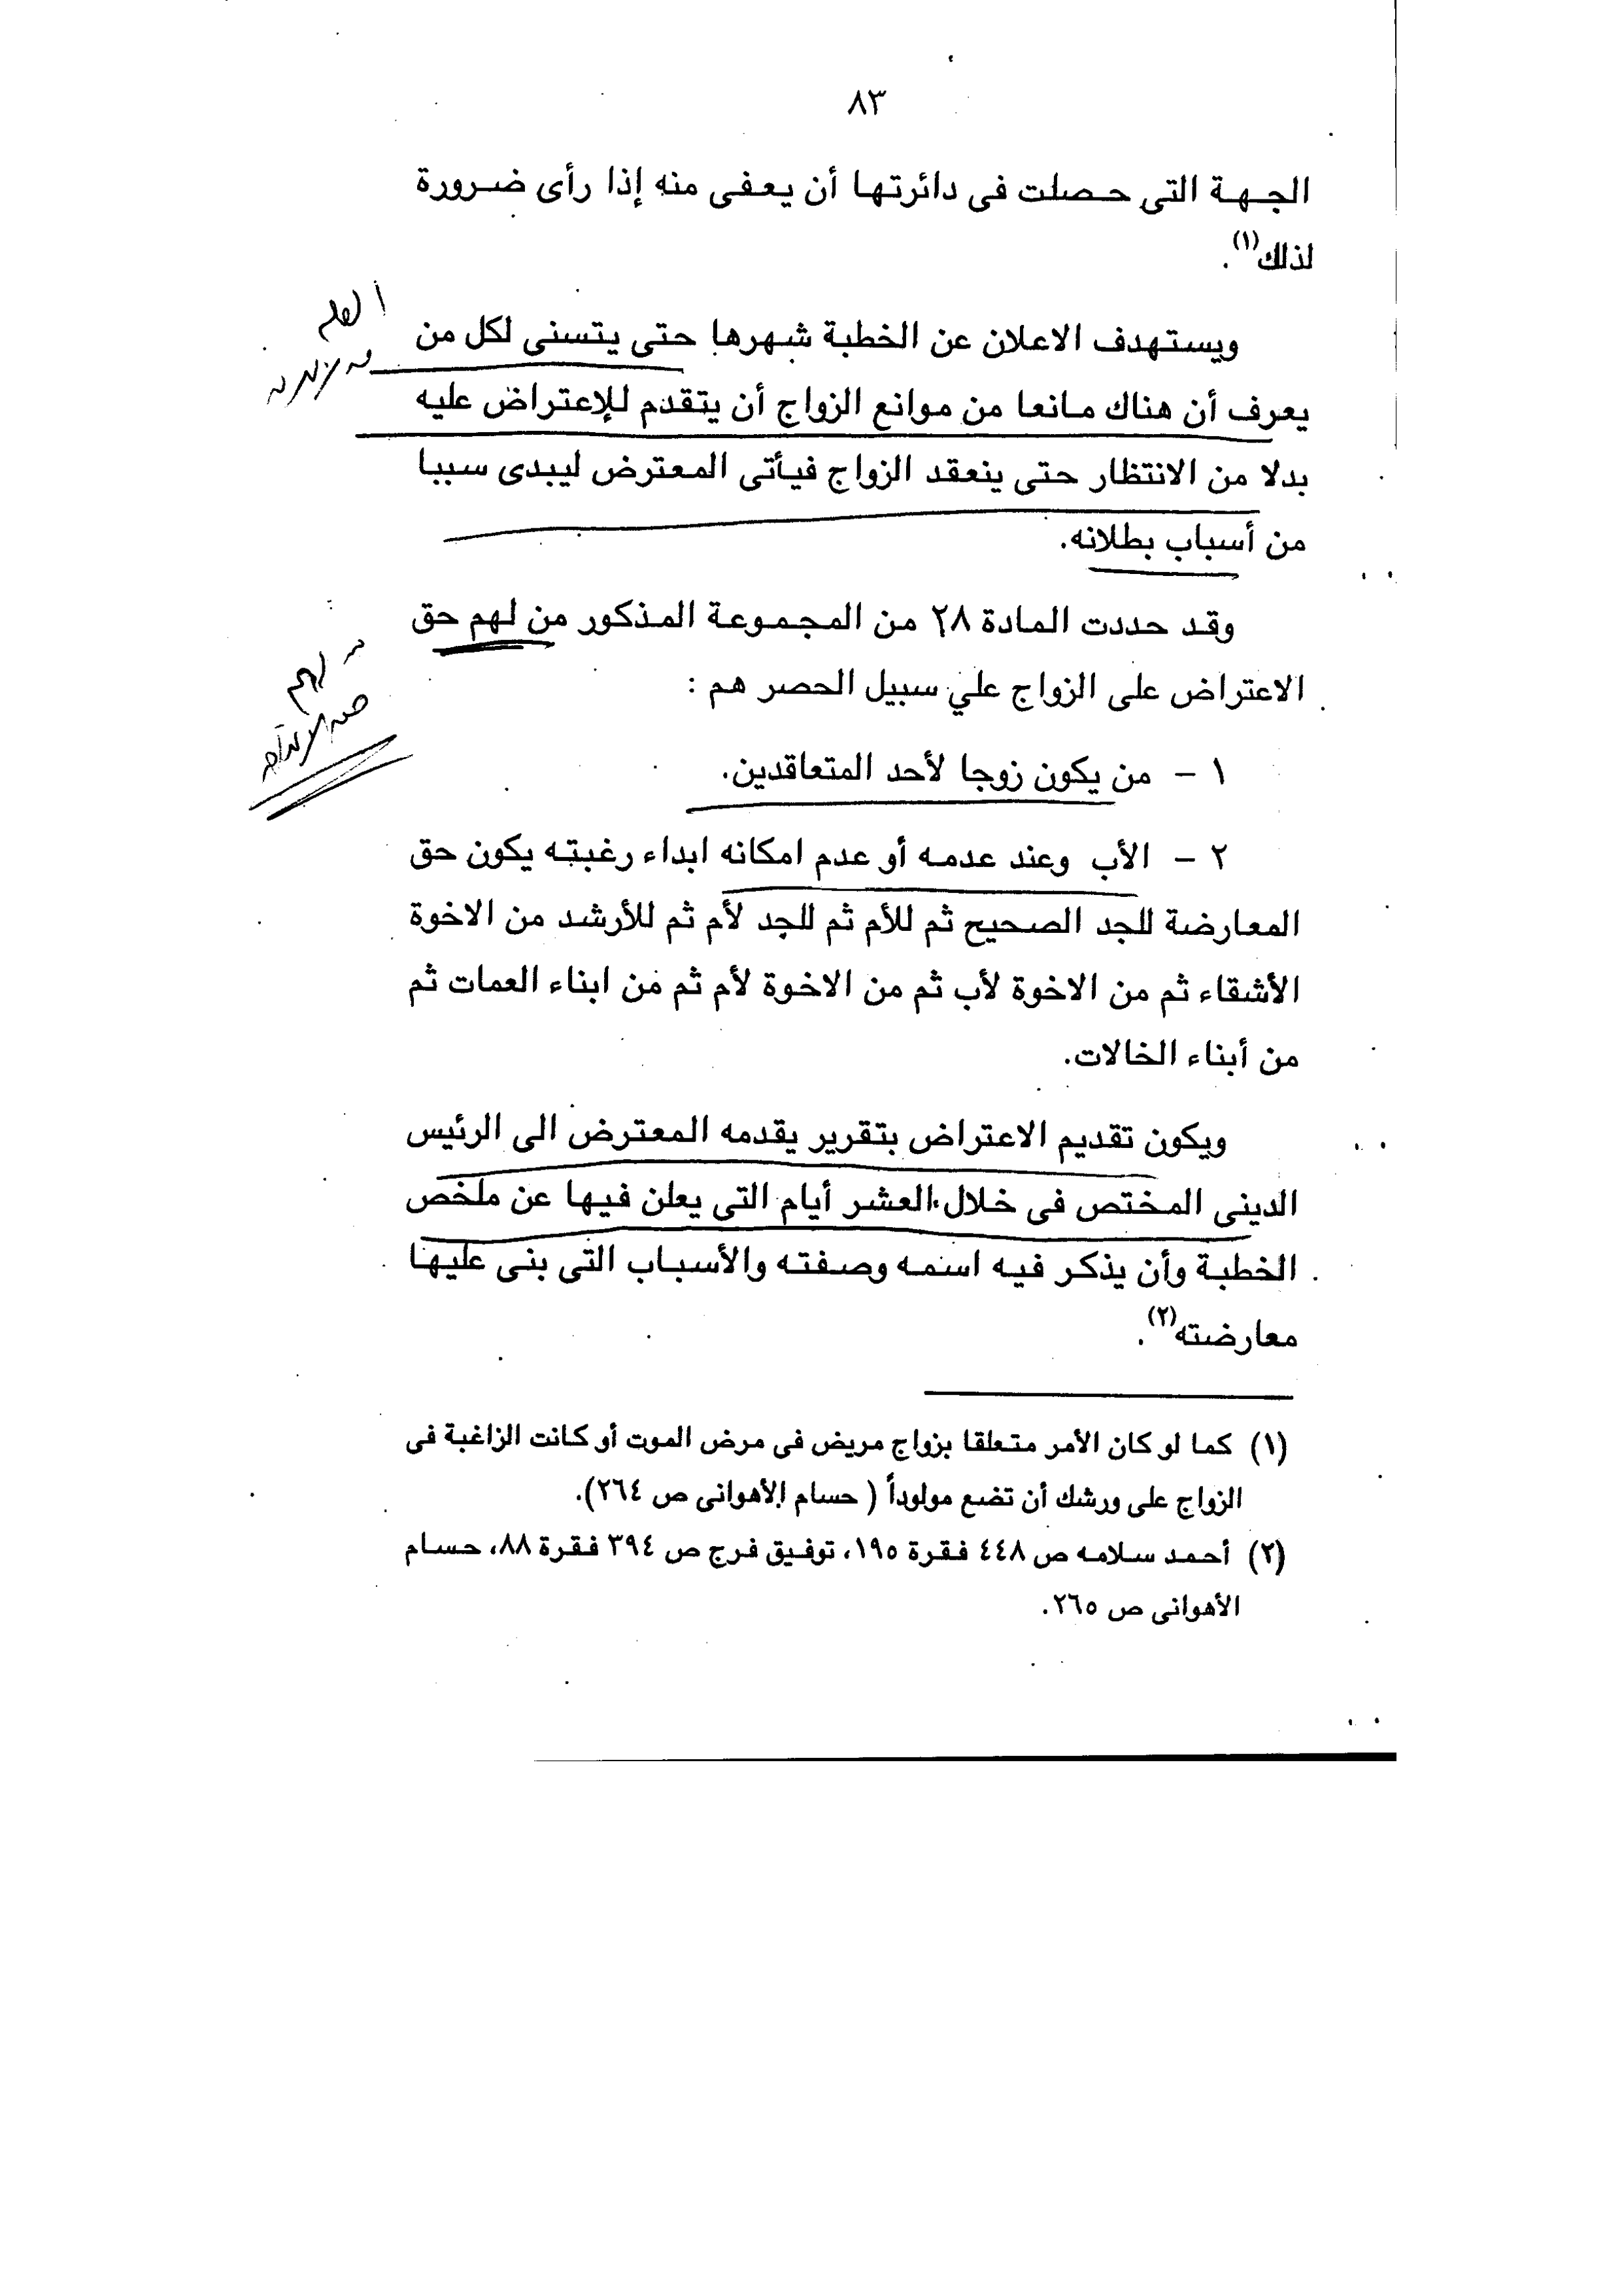 ٨٣
الجهة التى حصلت فى دائرتها أن يعفى منه إذا رأى ضرورة
لذلك(١).
ويستهدف الاعلان عن الخطبة شهرها حتى يتسنى لكل من
يعرف أن هناك مانعا من موانع الزواج أن يتقدم للإعتراض عليه
بدلا من الانتظار حتى ينعقد الزواج فيأتى المعترض ليبدى سببا
من أسباب بطلانه.
وقد حددت المادة ٢٨ من المجموعة المذكور من لهم حق
الاعتراض على الزواج علي سبيل الحصر هم :
١ - من يكون زوجا لأحد المتعاقدين.
٢ - الأب وعند عدمه أو عدم امكانه ابداء رغبته يكون حق
المعارضة للجد الصحيح ثم للأم ثم للجد لأم ثم للأرشد من الاخوة
الأشقاء ثم من الاخوة لأب ثم من الاخوة لأم ثم من ابناء العمات ثم
من أبناء الخالات.
ويكون تقديم الاعتراض بتقرير يقدمه المعترض الى الرئيس
الدينى المختص فى خلال العشر أيام التى يعلن فيها عن ملخص
الخطبة وأن يذكر فيه اسمه وصفته والأسباب التى بنى عليها
معارضته(٢).
(١) كما لو كان الأمر متعلقا بزواج مريض فى مرض الموت أو كانت الزاغبة فى
الزواج على ورشك أن تضع مولوداً ( حسام الأهوانى ص ٢٦٤).
(٢) أحمد سلامه ص ٤٤٨ فقرة ١٩٥، توفيق فرج ص ٣٩٤ فقرة ٨٨، حسام
الأهوانى ص ٢٦٥.